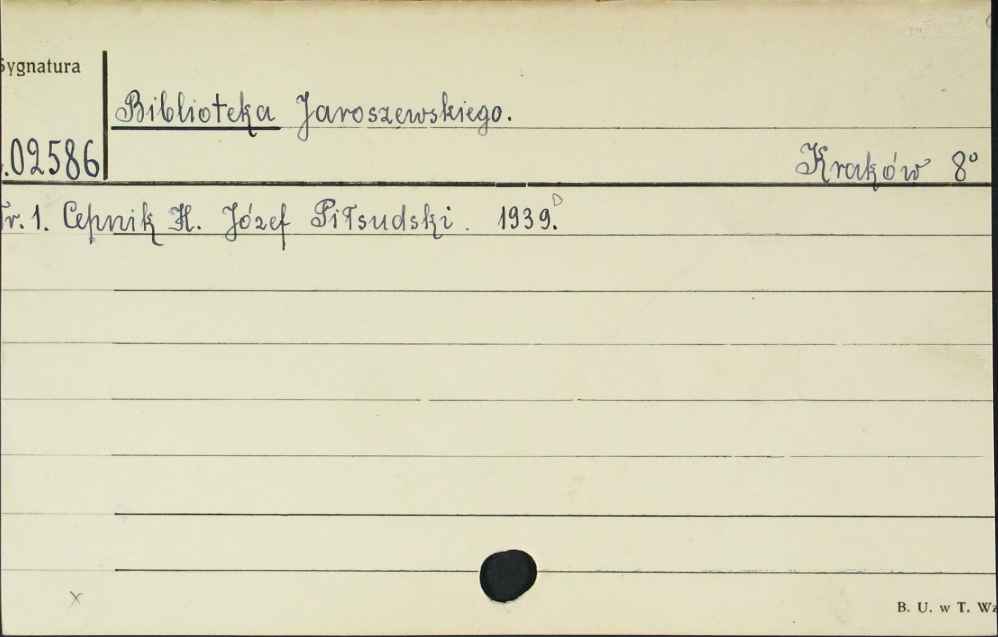 Sygnatura
Biblioteka Jaroszewskiego.
.02586
Kraków 8°
Nr. 1. Cepnik H. Józef Piłsudski. 1939. D
x
B. U. w T.